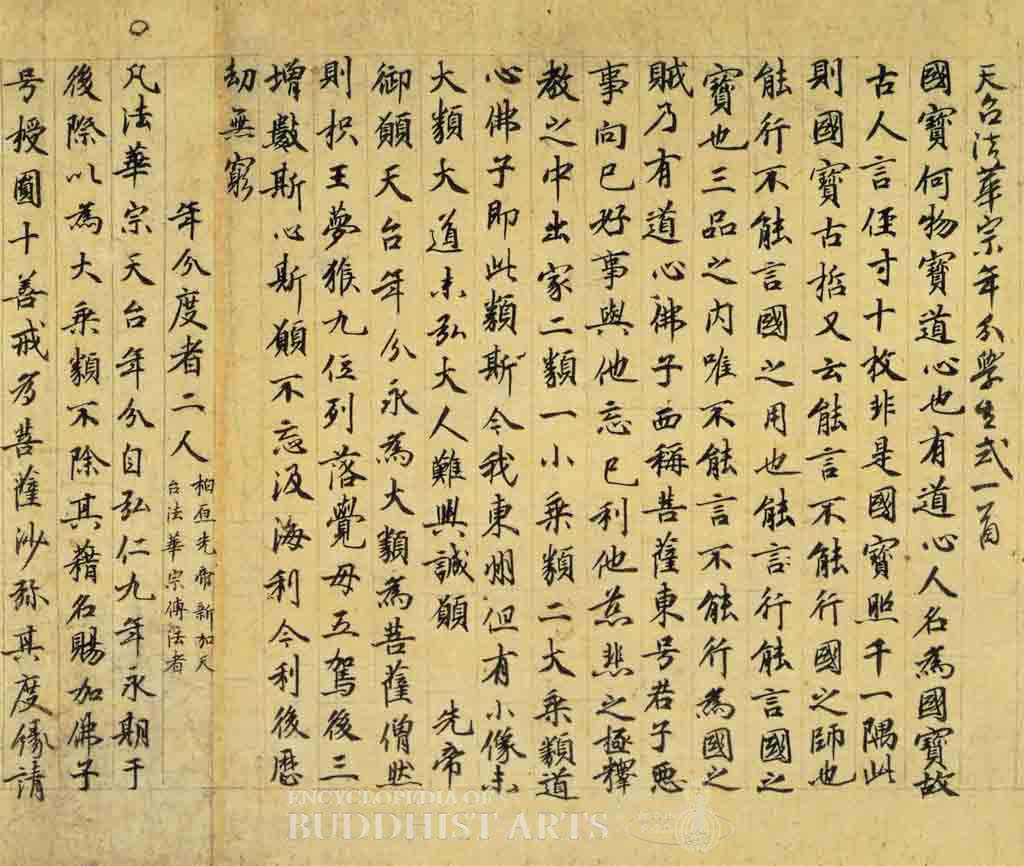 天台法華宗年分學生式一首
國寶何物寶道心也有道心人名為國寶故
古人言徑寸十枚非是國寶照千一隅此
則國寶古哲又云能言不能行國之師也
能行不能言國之用也能言行能言國之
寶也三品之内唯不能言不能行為國之
賊乃有道心佛子西稱菩薩東号君子惡
事向己好事與他忘己利他慈悲之極釋
教之中出家二類一小乘類二大乘類道
心佛子即此類斯今我東州但有小像未
大類大道未弘大人難興誠願 先帝
御願天台年分永為大類為菩薩僧然
則枳王夢猴九位列落覺母五駕後三
增數斯心斯願不忘汲海利今利後歷
劫無窮
年分度者二人
柏原先帝新加天
台法華宗傳法者
凡法華宗天台年分自弘仁九年永期于
後際以為大乘類不除其籍名賜加佛子
号授圓十善戒為菩薩沙弥其度縁請
ENCYCLOPEDIA OF
BUDDHIST ARTS